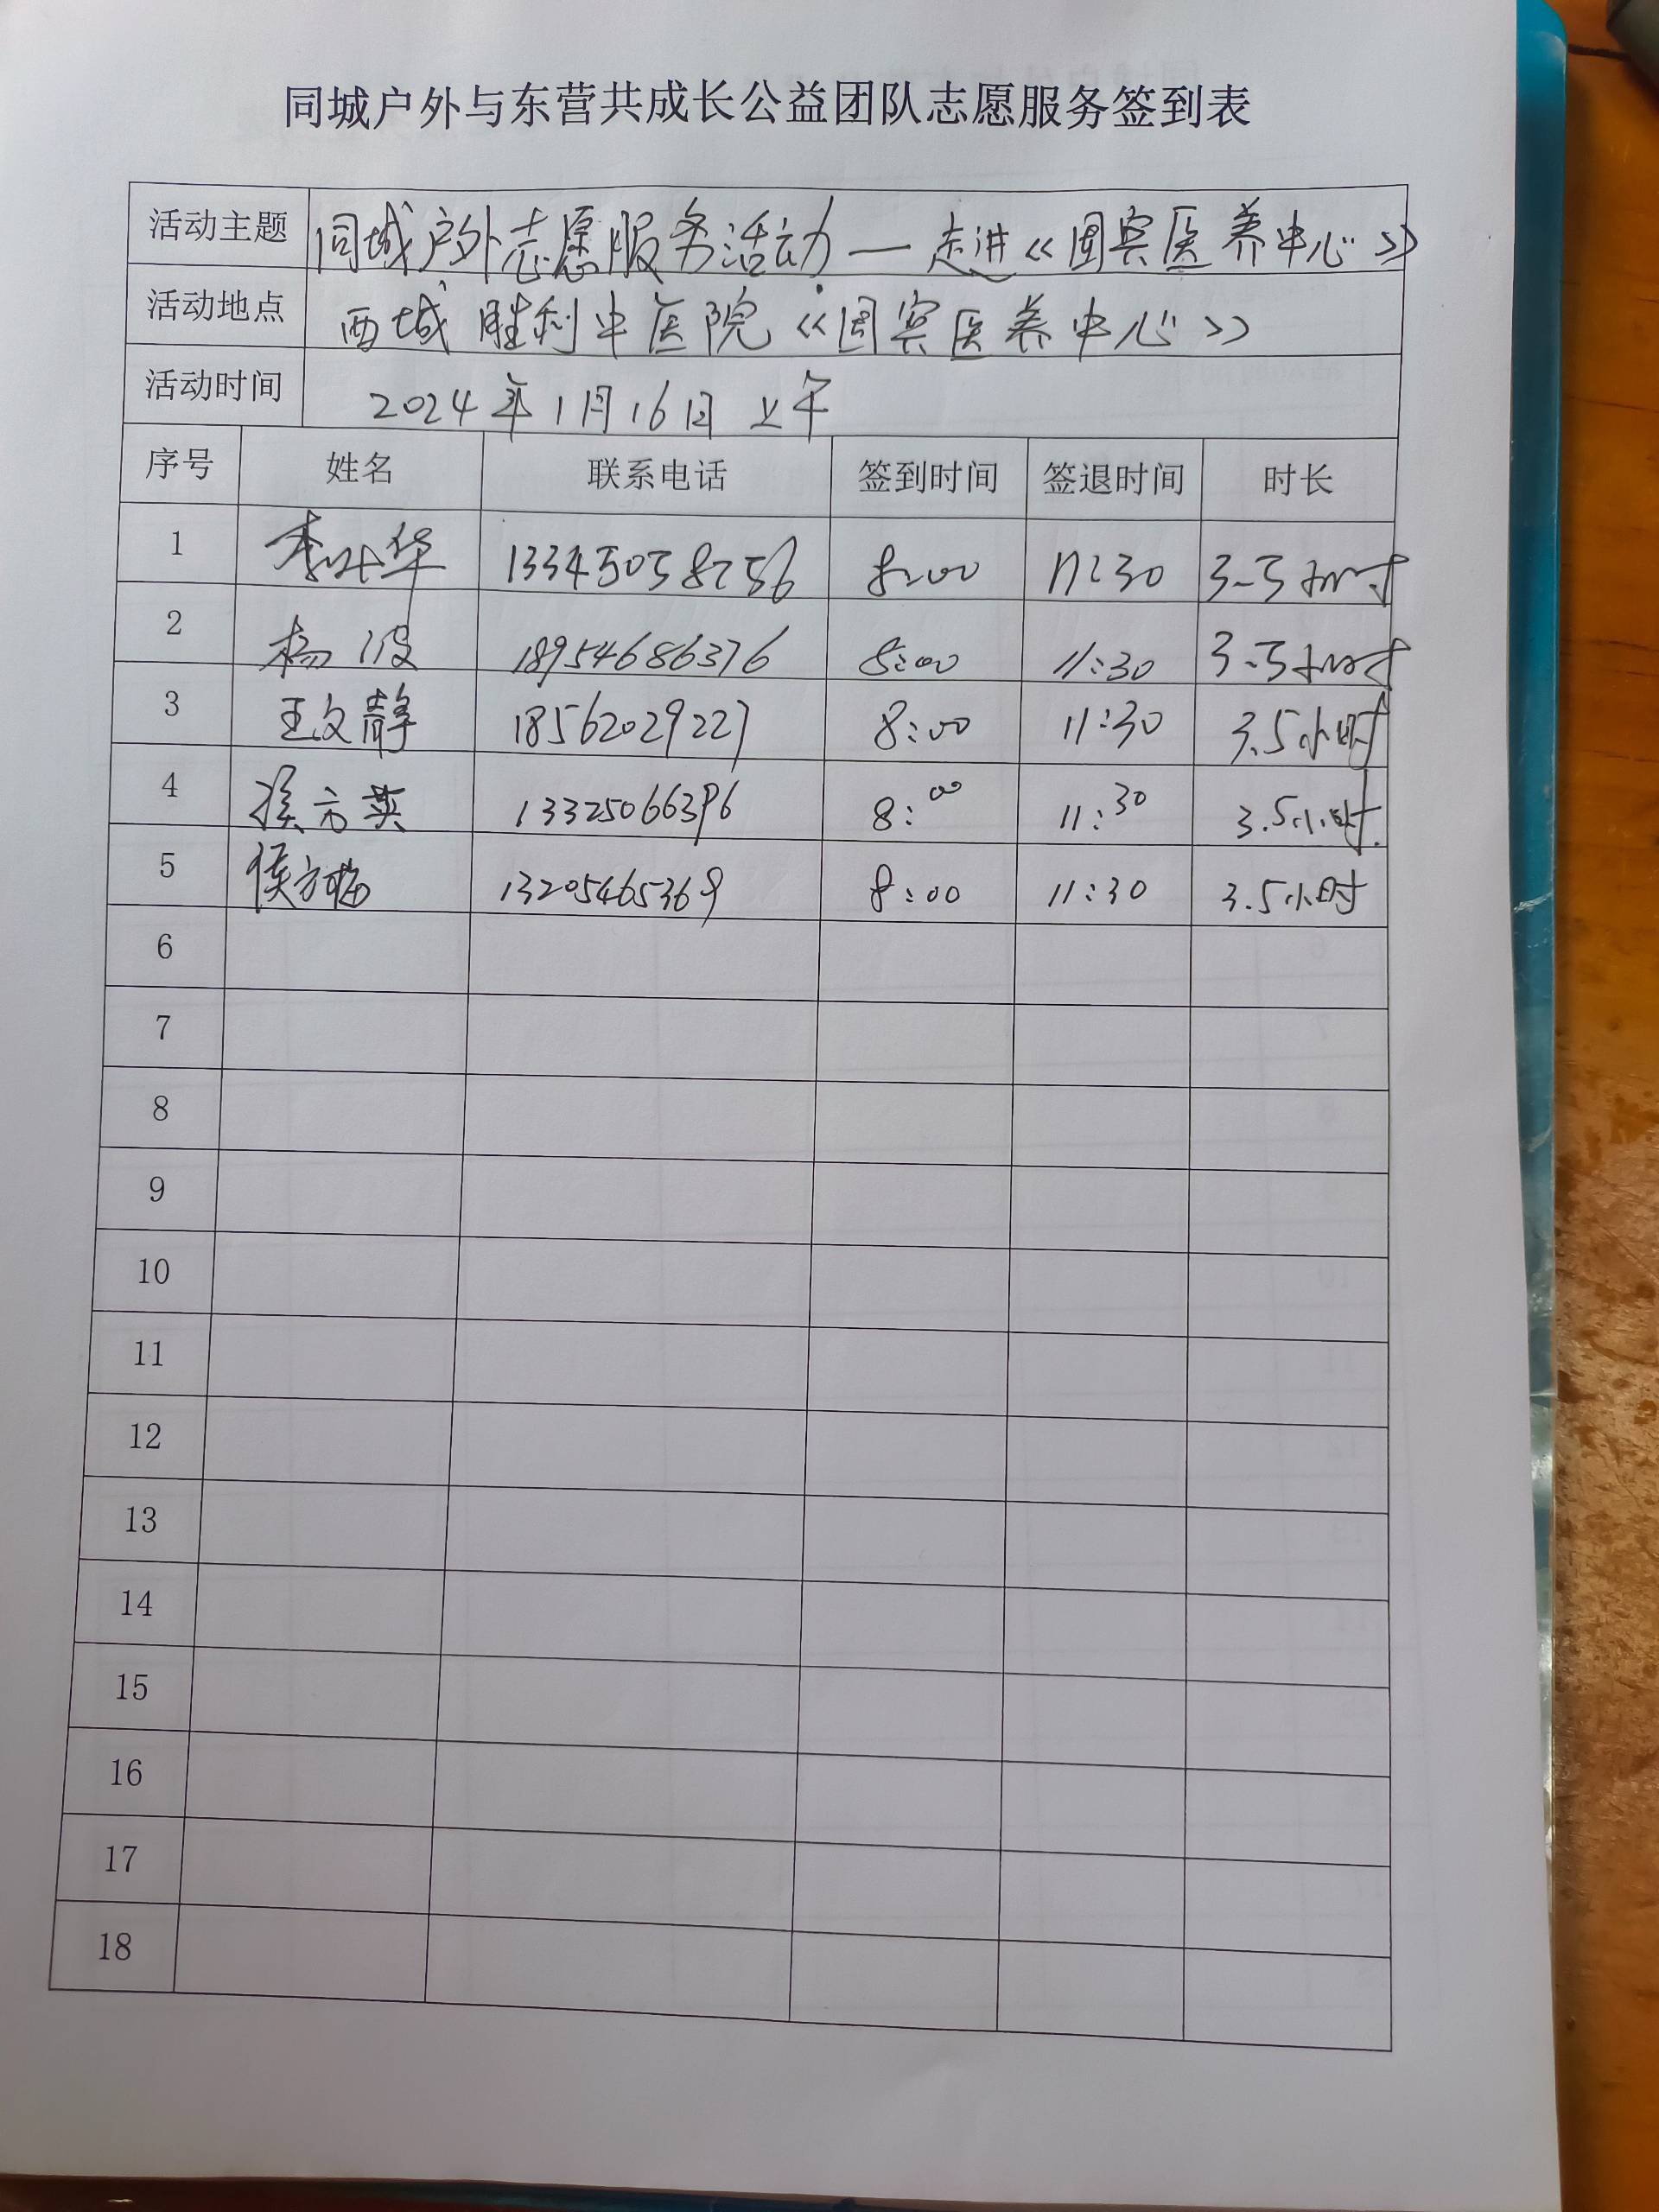 同城户外与东营共成长公益团队志愿服务签到表
活动主题 同城户外志愿服务活动—走进《国宾医养中心》
活动地点 西城胜利中医院《国宾医养中心》
活动时间 2024年1月16日上午
序号 姓名 联系电话 签到时间 签退时间 时长
1 李叶华 8:00 11:30 3.5小时
2 杨波 18954686376 8:00 11:30 3.5小时
3 王文静 18562029227 8:00 11:30 3.5小时
4 侯方英 13325066396 8:00 11:30 3.5小时.
5 侯方 13205465369 8:00 11:30 3.5小时
6
7
8
9
10
11
12
13
14
15
16
17
18